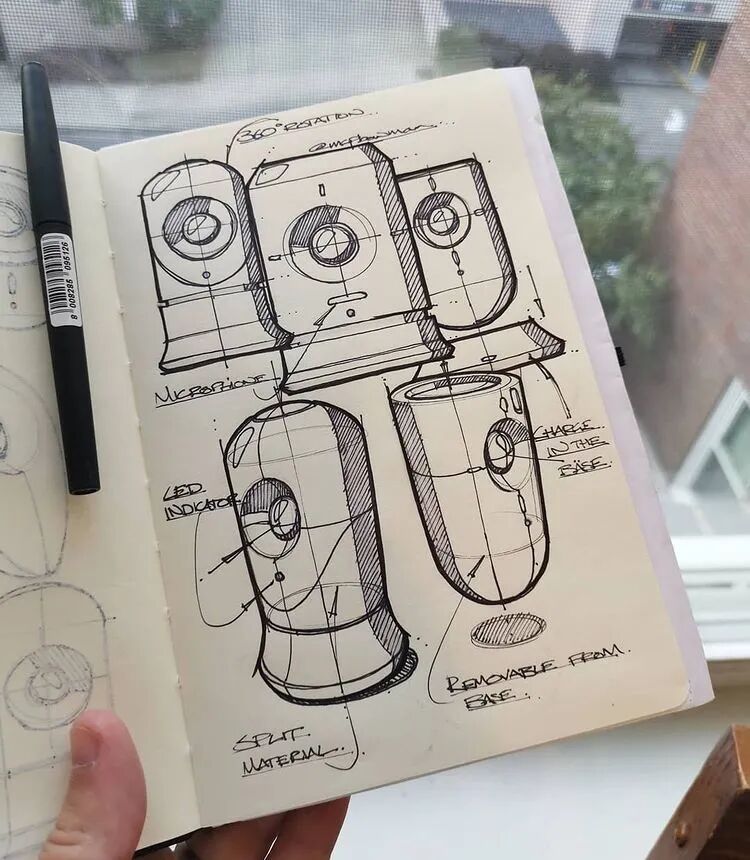 360° ROTATION
@mcpbowman
MICROPHONE
CHARGE
IN THE
BASE.
LED
INDICATOR
REMOVABLE FROM
BASE.
SPLIT
MATERIAL.
8 008285 095126